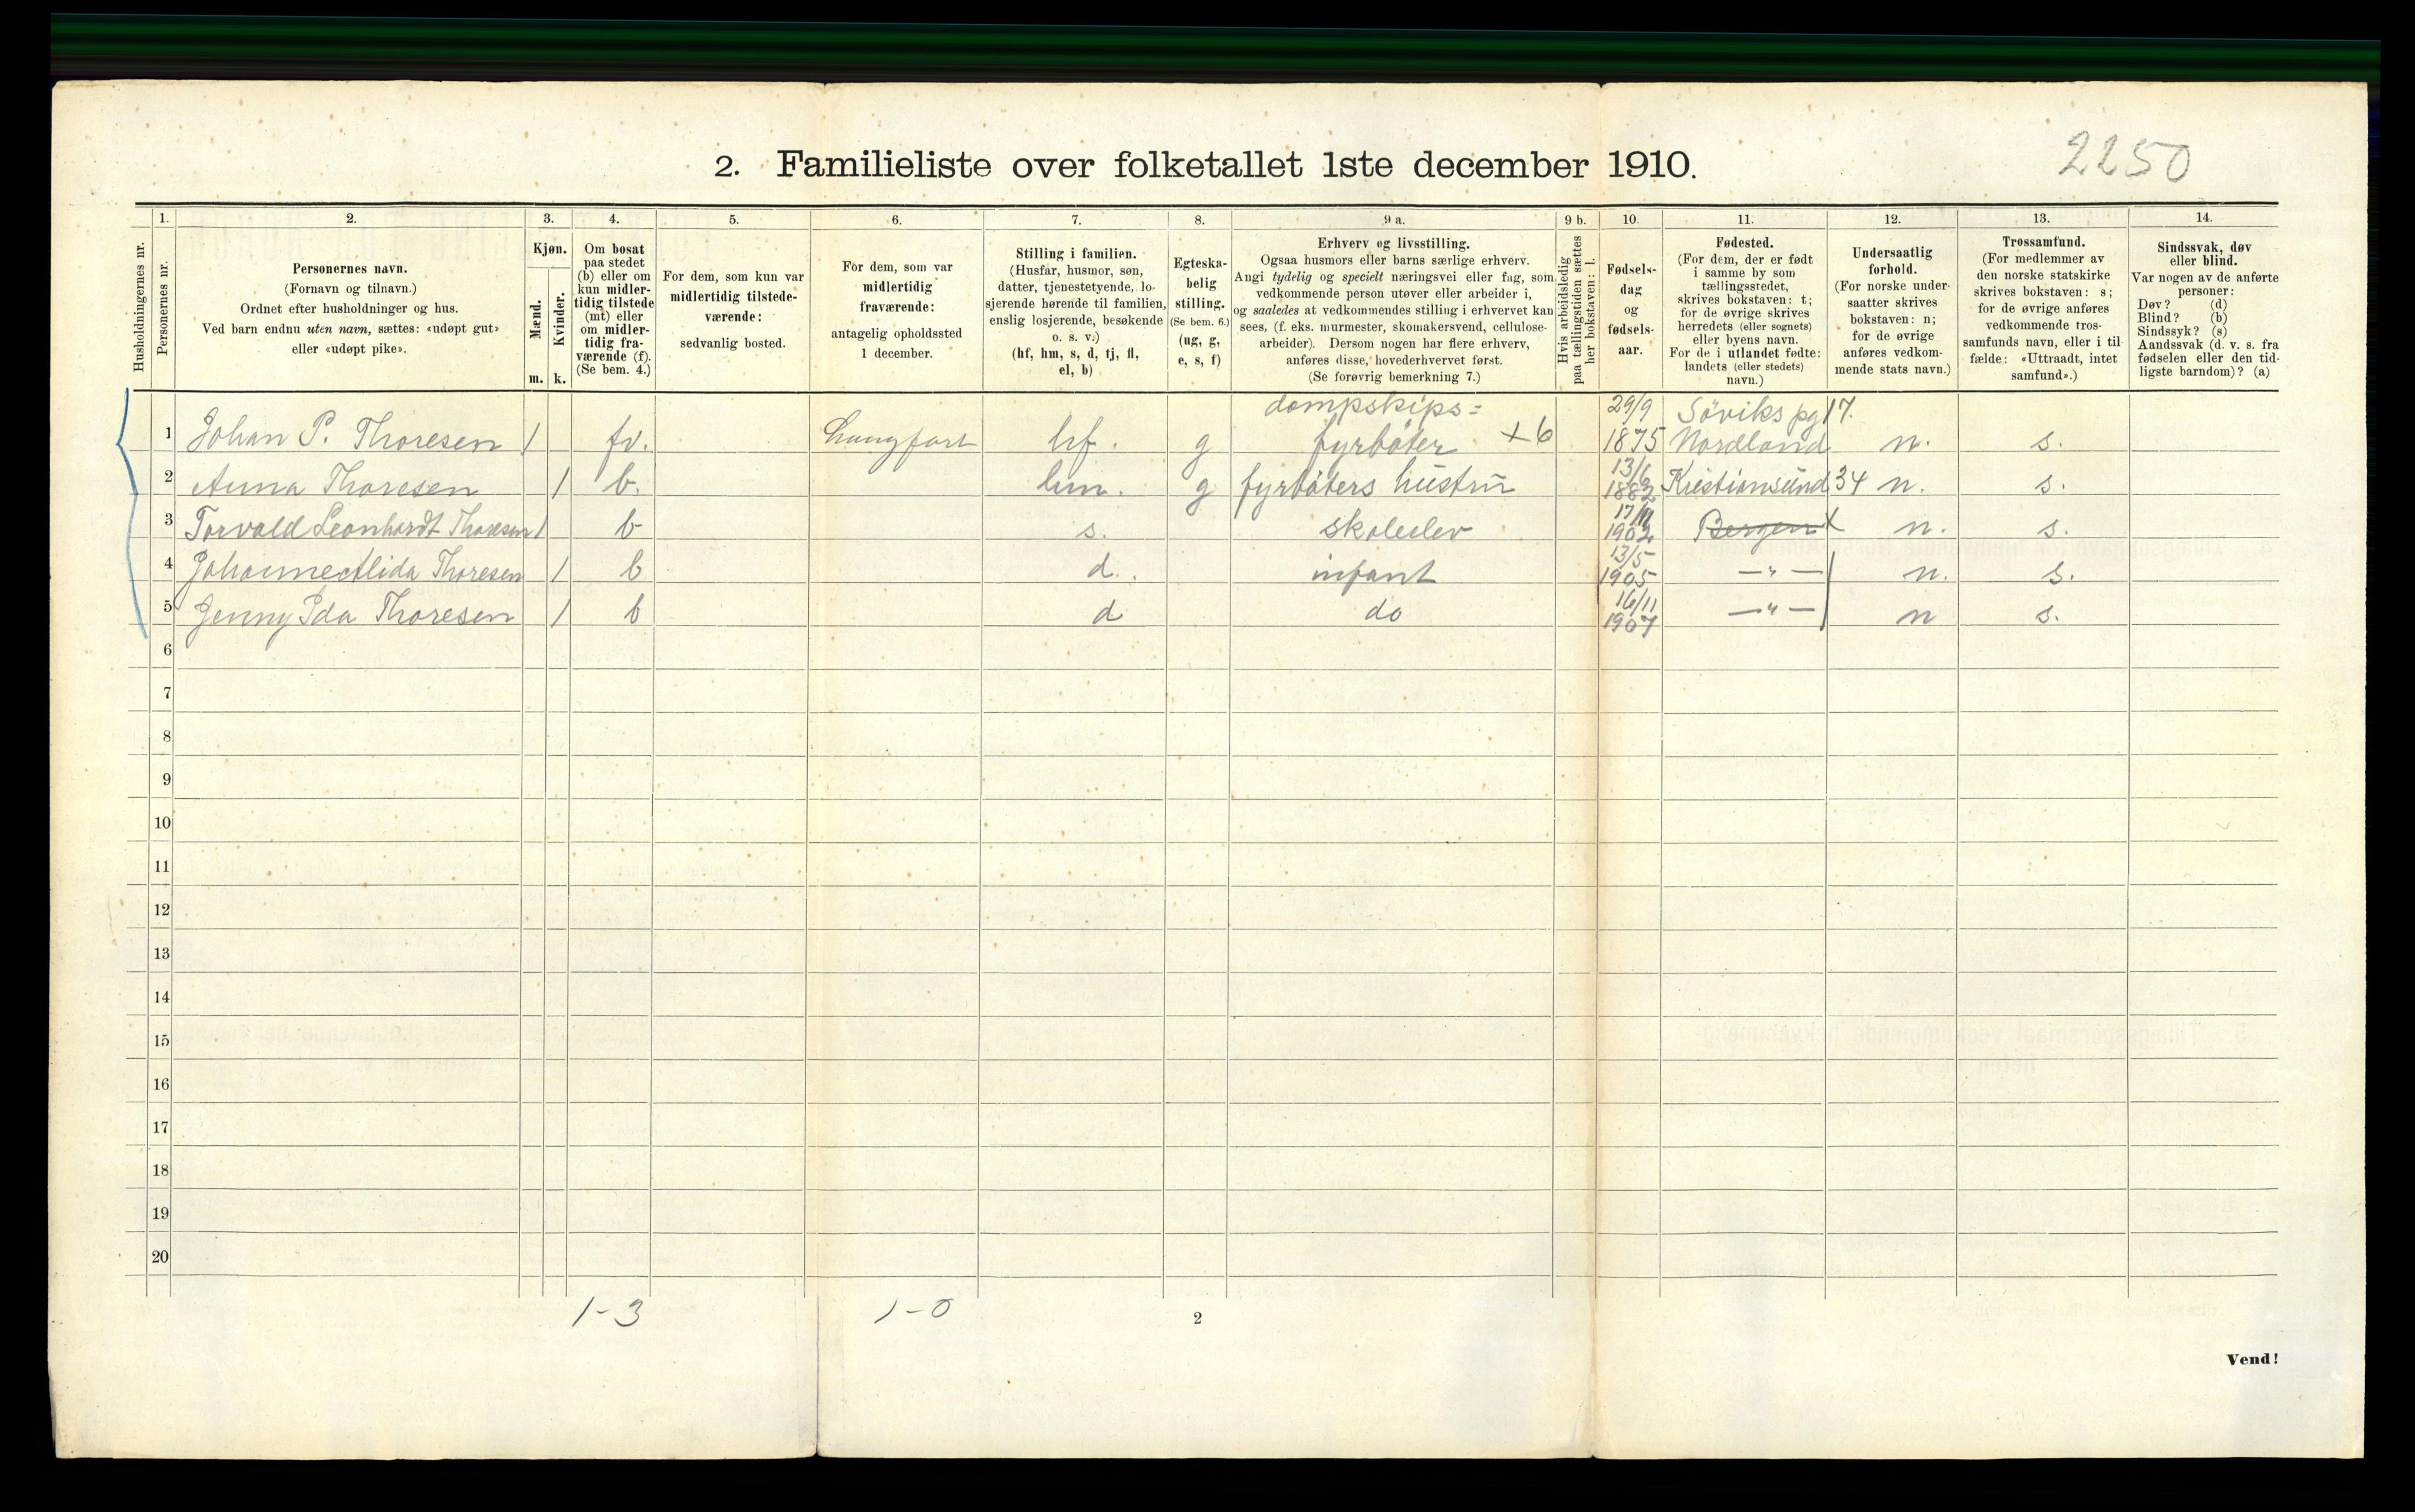 2250
2. Familieliste over folketallet 1ste december 1910.
1. 2. 3. 4. 5. 6. 7. 8. 9 a. 9 b. 10. 11. 12. 13. 14.
Husholdningernes nr.
Personernes nr.
Personernes navn.
(Fornavn og tilnavn.)
Ordnet efter husholdninger og hus.
Ved barn endnu uten navn, sættes: «udøpt gut»
eller «udøpt pike».
Kjøn.
Mænd.
Kvinder.
m. k.
Om bosat
paa stedet
(b) eller om
kun midler-
tidig tilstede
(mt) eller
om midler-
tidig fra-
værende (f).
(Se bem. 4.)
For dem, som kun var
midlertidig tilstede-
værende:
sedvanlig bosted.
For dem, som var
midlertidig
fraværende:
antagelig opholdssted
1 december.
Stilling i familien.
(Husfar, husmor, søn,
datter, tjenestetyende, lo-
sjerende hørende til familien,
enslig losjerende, besøkende
o. s. v.)
(hf, hm, s, d, tj, fl,
el, b)
Egteska-
belig
stilling.
(Se bem. 6.)
(ug, g,
e, s, f)
Erhverv og livsstilling.
Ogsaa husmors eller barns særlige erhverv.
Angi tydelig og specielt næringsvei eller fag, som
vedkommende person utøver eller arbeider i,
og saaledes at vedkommendes stilling i erhvervet kan
sees, (f. eks. murmester, skomakersvend, cellulose-
arbeider). Dersom nogen har flere erhverv,
anføres disse, hovederhvervet først.
(Se forøvrig bemerkning 7.)
Hvis arbeidsledig
paa tællingstiden sættes
her bokstaven: l.
Fødsels-
dag
og
fødsels-
aar.
Fødested.
(For dem, der er født
i samme by som
tællingsstedet,
skrives bokstaven: t;
for de øvrige skrives
herredets (eller sognets)
eller byens navn.
For de i utlandet fødte:
landets (eller stedets)
navn.)
Undersaatlig
forhold.
(For norske under-
saatter skrives
bokstaven: n;
for de øvrige
anføres vedkom-
mende stats navn.)
Trossamfund.
(For medlemmer av
den norske statskirke
skrives bokstaven: s;
for de øvrige anføres
vedkommende tros-
samfunds navn, eller i til-
fælde: «Uttraadt, intet
samfund».)
Sindssvak, døv
eller blind.
Var nogen av de anførte
personer:
Døv? (d)
Blind? (b)
Sindssyk? (s)
Aandssvak (d. v. s. fra
fødselen eller den tid-
ligste barndom)? (a)
dampskips= 29/9 Söviks pg 17.
1 Johan P. Thoresen 1 fv. Langfart hf. g fyrböter +6 1875 Nordland n. s.
13/6
2 Anna Thoresen 1 b. hm. g fyrböters hustru 1882 Kristiansund 34 n. s.
17/11
3 Torvald Leonhardt Thoresen 1 b s. skoleelev 1902 Bergen t n. s.
13/5
4 Johanne Alida Thoresen 1 b d. infant 1905 —"— n. s.
16/11
5 Jenny Ida Thoresen 1 b d do 1907 —"— n s.
6
7
8
9
10
11
12
13
14
15
16
17
18
19
20
1-3 1-0
2
Vend!